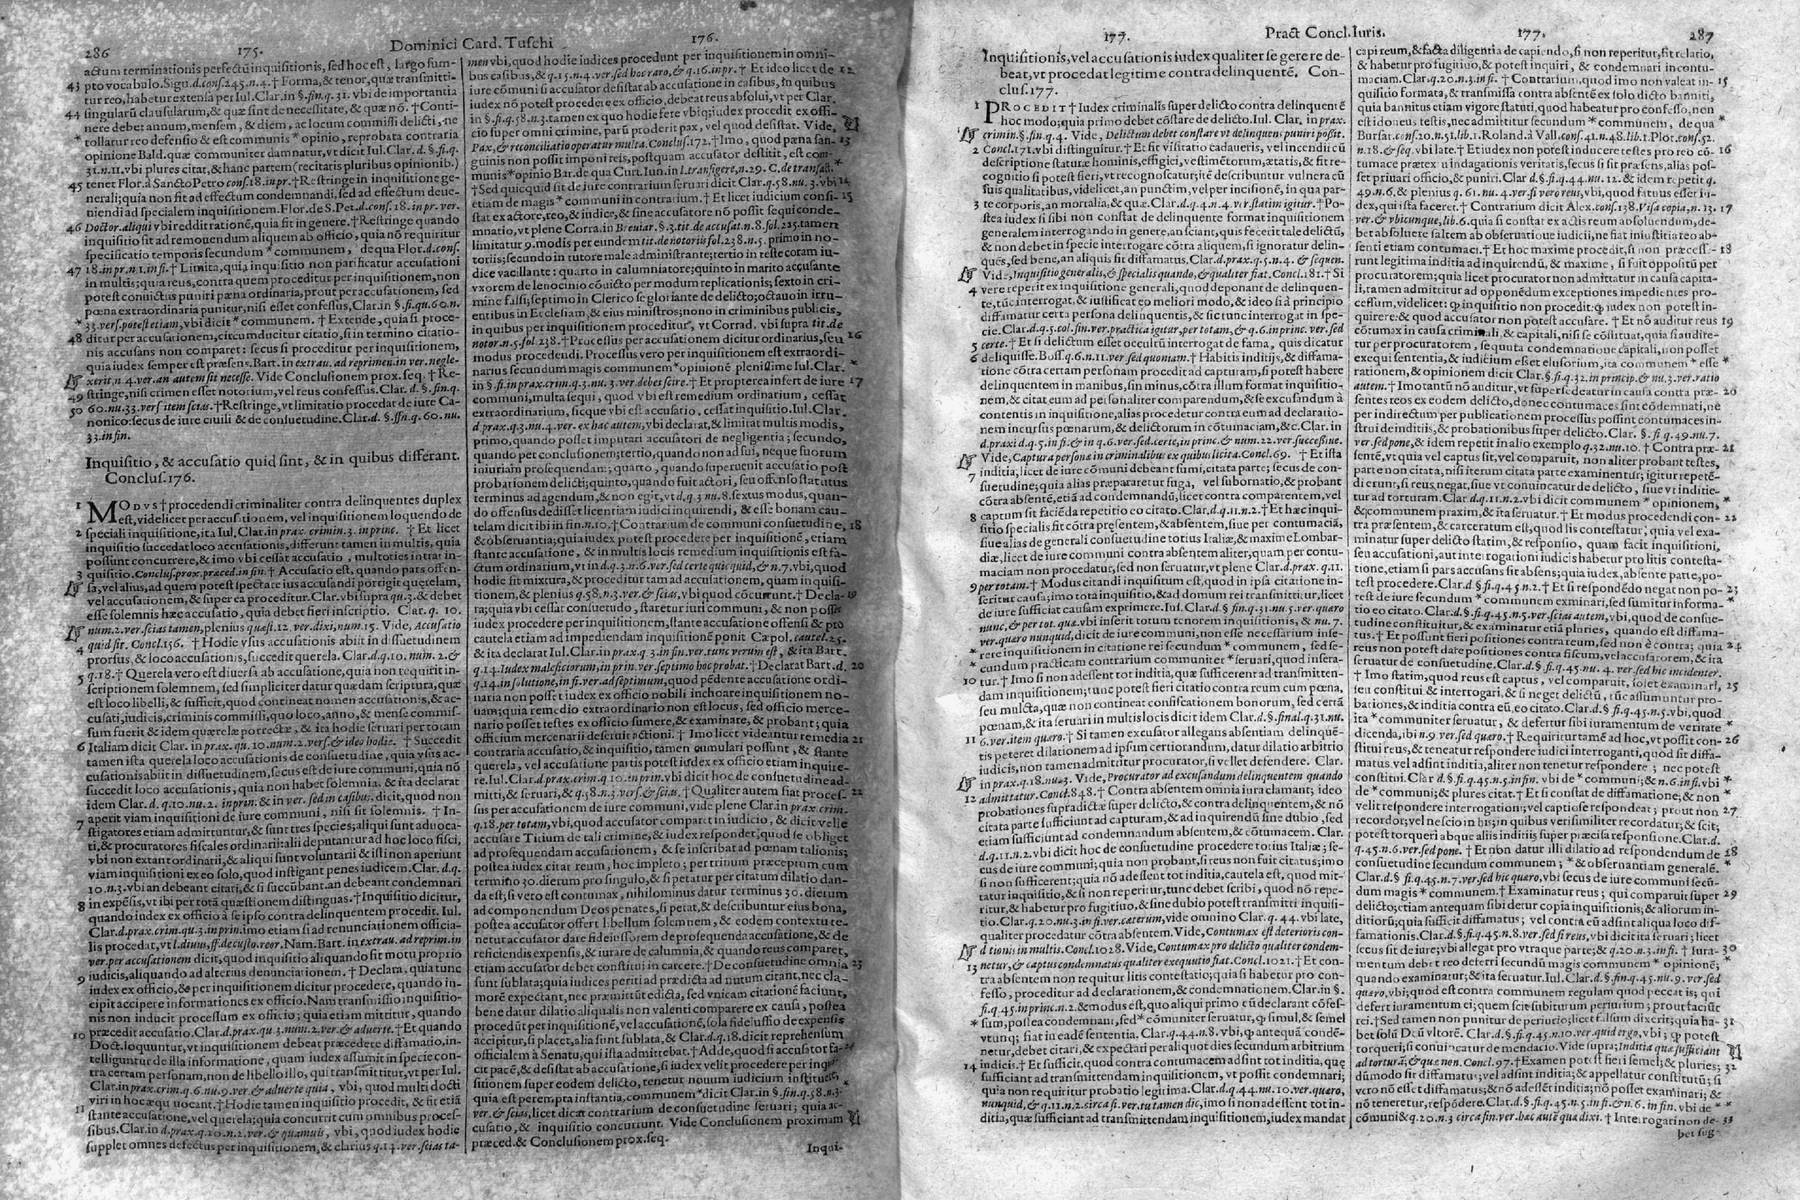 286 175. Dominici Card. Tuschi 176.
actum terminationis perfectū inquisitionis, sed hoc est, largo sum-
pto vocabulo. Sign.d.cons.245.n.4. † Forma, & tenor, quæ transmitti-
tur reo, habetur extensa per Iul. Clar. in §.fin.q.31. vbi de importantia
singularū clausularum, & quæ sint de necessitate, & quæ nō. † Conti-
nere debet annum, mensem, & diem, ac locum commissi delicti, ne
tollatur reo defensio & est communis * opinio, reprobata contraria
opinione Bald. quæ communiter damnatur, vt dicit Iul. Clar. d. §.fi.q.
31.n.11. vbi plures citat, & hanc partem (recitatis pluribus opinionib.)
tenet Flor. à Sancto Petro cons.18.in pr. † Restringe in inquisitione ge-
nerali; quia non fit ad effectum condemnandi, sed ad effectum deue-
niendi ad specialem inquisitionem. Flor. de S. Pet. d.cons.18.in pr. ver.
Doctor. aliqui vbi reddit rationē, quia fit in genere. † Restringe quando
inquisitio fit ad remouendum aliquem ab officio, quia nō requiritur
specificatio temporis secundum * communem, de qua Flor. d.cons.
18.in pr.n.1.in fi. † Limita, quia inquisitio non parificatur accusationi
in multis; quia reus, contra quem proceditur per inquisitionem, non
potest conuictus puniri pœna ordinaria, prout per accusationem, sed
pœna extraordinaria punitur, nisi esset confessus, Clar. in §.fi.qu.60.n.
33.vers.potest etiam, vbi dicit * communem. † Extende, quia si proce-
ditur per accusationem, circumducitur citatio, si in termino citatio-
nis accusans non comparet: secus si proceditur per inquisitionem,
quia iudex semper est præsens. Bart. in extrau. ad reprimen. in ver. negle-
xerit, n.4.ver. an autem sit necesse. Vide Conclusionem prox. seq. † Re-
stringe, nisi crimen esset notorium, vel reus confessus. Clar. d. §.fin.q.
60.nu.33.vers item scias. † Restringe, vt limitatio procedat de iure Ca-
nonico: secus de iure ciuili & de consuetudine. Clar. d. §.fin.q.60.nu.
33.in fin.
Inquisitio, & accusatio quid sint, & in quibus differant.
Conclus. 176.
MODVS † procedendi criminaliter contra delinquentes duplex
est, videlicet per accusationem, vel inquisitionem loquendo de
speciali inquisitione, ita Iul. Clar. in prax. crimin. 3. in princ. † Et licet
inquisitio succedat loco accusationis, differunt tamen in multis, quia
possunt concurrere, & imo vbi cessat accusatio, multoties intrat in-
quisitio. Conclus. prox. præced. in fin. † Accusatio est, quando pars offen-
sa, vel alius, ad quem potest spectare ius accusandi porrigit querelam,
vel accusationem, & super ea proceditur. Clar. vbi supra qu.3. & debet
esse solemnis hæc accusatio, quia debet fieri inscriptio. Clar. q. 10.
num.2. ver. scias tamen, plenius quæst.12. ver. dixi, num.15. Vide, Accusatio
quid sit. Concl. 156. † Hodie vsus accusationis abijt in dissuetudinem
prorsus, & loco accusationis, succedit querela. Clar. d.q.10. num. 2. &
q.18. † Querela vero est diuersa ab accusatione, quia non requirit in-
scriptionem solemnem, sed simpliciter datur quædam scriptura, quæ
est loco libelli, & sufficit, quod contineat nomen accusationis, & ac-
cusati, iudicis, criminis commissi, quo loco, anno, & mense commis-
sum fuerit & idem querelæ porrectæ, & ita hodie seruari per totam
Italiam dicit Clar. in prax. qu. 10.num.2. vers. & ideo hodie. † Succedit
tamen ista querela loco accusationis de consuetudine, quia vsus ac-
cusationis abijt in dissuetudinem, secus est de iure communi, quia nō
succedit loco accusationis, quia non habet solemnia. & ita declarat
idem Clar. d. q.10.nu. 2. in prin. & in ver. sed in casibus, dicit, quod non
aperit viam inquisitioni de iure communi, nisi sit solemnis. † In-
stigatores etiam admittuntur, & sunt tres species; aliqui sunt aduoca-
ti, & procuratores fiscales ordinarij: alij deputantur ad hoc loco fisci,
vbi non extant ordinarij, & aliqui sunt voluntarij & isti non aperiunt
viam inquisitioni ex eo solo, quod instigant penes iudicem. Clar. d.q.
10.n.3. vbi an debeant citari, & si succūbant, an debeant condemnari
in expēsis, vt ibi per totā quæstionem distinguas. † Inquisitio dicitur,
quando iudex ex officio à se ipso contra delinquentem procedit. Iul.
Clar. d.prax.crim.qu.3.in prin. imo etiam si ad renunciationem officia-
lis procedat, vt l. diuus, ff. de custo. reor. Nam. Bart. in extrau. ad reprim. in
ver. per accusationem dicit, quod inquisitio aliquando fit motu proprio
iudicis, aliquando ad alterius denunciationem. † Declara, quia tunc
iudex ex officio, & per inquisitionem dicitur procedere, quando in-
cipit accipere informationes ex officio. Nam transmissio inquisitio-
nis non inducit processum ex officio; quia etiam mittitur, quando
præcedit accusatio. Clar. d.prax.qu.3.num.2. ver. & aduerte. † Et quando
Doct. loquuntur, vt inquisitionem debeat præcedere diffamatio, in-
telliguntur de illa informatione, quam iudex assumit in specie con-
tra certam personam, non de libello illo, qui transmittitur, vt per Iul.
Clar. in prax. crim. q. 6. nu.9. ver. & aduerte quia, vbi, quod multi docti
viri in hoc æquiuocant. † Hodie tamen inquisitio procedit, & fit etiā
stante accusatione, vel querela; quia concurrit cum omnibus proces-
sibus. Clar. in d.prax.q.10.n.2. ver. & quamuis, vbi, quod iudex hodie
supplet omnes defectus per inquisitionem, & clarius q.14. ver. scias ta-
men vbi, quod hodie iudices procedunt per inquisitionem in omni-
bus casibus, & q.15.n.4. ver. sed hoc raro, & q.16. in pr. † Et ideo licet de
iure cōmuni si accusator desistat ab accusatione in casibus, in quibus
iudex nō potest procedere ex officio, debeat reus absolui, vt per Clar.
in §.fi.q.58.n.3. tamen ex quo hodie fere vbiq; iudex procedit ex offi-
cio super omni crimine, parū proderit pax, vel quod desistat. Vide,
Pax, & reconciliatio operatur multa. Conclus. 172. † Imo, quod pœna san-
guinis non possit imponi reis, postquam accusator destitit, est com-
munis * opinio Bar. de qua Curt. Iun. in l. transigere, n.29. C. de transact.
† Sed quicquid sit de iure contrarium seruari dicit Clar. q.58.nu.3. vbi
etiam de magis * communi in contrarium. † Et licet iudicium consi-
stat ex actore, reo, & iudice, & sine accusatore nō possit sequi conde-
mnatio, vt plene Corra. in Breuiar. §.3. tit. de accusat. n.8. fol. 235. tamen
limitatur 9. modis per eundem tit. de notorijs fol. 238.n.5. primo in no-
torijs; secundo in tutore male administrante; tertio in teste coram iu-
dice vacillante: quarto in calumniatore; quinto in marito accusante
vxorem de lenocinio cōuicto per modum replicationis; sexto in cri-
mine falsi; septimo in Clerico se gloriante de delicto; octauo in irru-
entibus in Ecclesiam, & eius ministros; nono in criminibus publicis,
in quibus per inquisitionem proceditur, vt Corrad. vbi supra tit. de
notor. n.5. fol. 238. † Processus per accusationem dicitur ordinarius, seu
modus procedendi. Processus vero per inquisitionem est extraordi-
narius secundum magis communem * opinionē plenissime Iul. Clar.
in §.fi. in prax. crim. q.3.nu. 3. ver. debes scire. † Et propterea infert de iure
communi, multa sequi, quod vbi est remedium ordinarium, cessat
extraordinarium, sicque vbi est accusatio, cessat inquisitio. Iul. Clar.
d.prax.q.3.nu.4. ver. ex hac autem, vbi declarat, & limitat multis modis,
primo, quando posset imputari accusatori de negligentia; secundo,
quando pet conclusionem; tertio, quando non ad sui, neque suorum
iniuriam prosequendam; quarto, quando superuenit accusatio post
probationem delicti; quinto, quando fuit actori, seu offenso statutus
terminus ad agendum, & non egit, vt d.q.3.nu.8. sextus modus, quan-
do offensus dedisset licentiam iudici inquirendi, & esse bonam cau-
telam dicit ibi in fin. n.10. † Contrarium de communi consuetudine,
& obseruantia; quia iudex potest procedere per inquisitionē, etiam
stante accusatione, & in multis locis remedium inquisitionis est fa-
ctum ordinarium, vt in d.q.3.n.6. ver. sed certe quicquid, & n.7. vbi, quod
hodie fit mixtura, & proceditur tam ad accusationem, quam inquisi-
tionem, & plenius q.58.n.3. ver. & scias, vbi quod cōcurrunt. † Decla-
ra; quia vbi cessat consuetudo, staretur iuri communi, & non posset
iudex procedere per inquisitionem, stante accusatione offensi & pro
cautela etiam ad impediendam inquisitionē ponit Cæpol. cautel. 25.
& ita declarat Iul. Clar. in prax. q.3. in fin. ver. tunc verum est, & ita Bart.
q.14. Iudex maleficiorum, in prin. ver. septimo hoc probat. † Declarat Bart. d.
q.14. in solutione, in fi. ver. ad septimum, quod pēdente accusatione ordi-
naria non posset iudex ex officio nobili inchoare inquisitionem no-
uam; quia remedio extraordinario non est locus, sed officio merce-
nario posset testes ex officio sumere, & examinare, & probant; quia
officium mercenarij deseruit actioni. † Imo licet videantur remedia
contraria accusatio, & inquisitio, tamen cumulari possunt, & stante
querela, vel accusatione partis potest iudex ex officio etiam inquire-
re. Iul. Clar. d.prax.crim.q.10.in prin. vbi dicit hoc de consuetudine ad-
mitti, & seruari, & q.58.n.3. vers. & scias. † Qualiter autem fiat proces-
sus per accusationem de iure communi, vide plene Clar. in prax. crim.
q.18. per totam, vbi, quod accusator comparet in iudicio, & dicit velle
accusare Titium de tali crimine, & iudex respondet; quod se obliget
ad prosequendam accusationem, & se inscribat ad pœnam talionis;
postea iudex citat reum, hoc impleto; per trinum præceptum cum
termino 30. dierum pro singulo, & si petatur per citatum dilatio dan-
da est; si vero est contumax, nihilominus datur terminus 30. dierum
ad componendum Deos penates, si petat, & describuntur eius bona,
postea accusator offert libellum solemnem, & eodem contextu te-
netur accusator dare fideiussorem de prosequenda accusatione, & de
reficiendis expensis, & iurare de calumnia, & quando reus comparet,
etiam accusator debet constitui in carcere. † De consuetudine omnia
sunt sublata; quia iudices periti ad prædicta ad nutum citant, nec cla-
morē expectant, nec præmittūt edicta, sed vnicam citationē faciunt,
bene datur dilatio aliqualis non valenti comparere ex causa, postea
procedūt per inquisitionē, vel accusationē, sola fideiussio de expensis
accipitur, si placet, alia sunt sublata, & Clar. d.q.18. dicit reprehensum
officialem à Senatu, qui ista admittebat. † Adde, quod si accusator fa-
cit pacē, & desistat ab accusatione, si iudex velit procedere per inqui-
sitionem super eodem delicto, tenetur nouum iudicium instituere,
quia est perempta instantia, communem * dicit Clar. in §.fin.q.58.n.3.
ver. & scias, licet dicat contrarium de consuetudine seruari; quia ac-
cusatio, & inquisitio concurrunt. Vide Conclusionem proximam
præced. & Conclusionem prox. seq.
Inqui-
177. Pract. Concl. Iuris. 177. 287
Inquisitionis, vel accusationis iudex qualiter se gerere de-
beat, vt procedat legitime contra delinquentē. Con-
clus. 177.
PROCEDIT † Iudex criminalis super delicto contra delinquentē
hoc modo; quia primo debet constare de delicto. Iul. Clar. in prax.
crimin. §.fin.q.4. Vide, Delictum debet constare vt delinquens puniri possit.
Concl. 171. vbi distinguitur. † Et fit visitatio cadaueris, vel incendij cū
descriptione staturæ hominis, effigiei, vestimētorum, ætatis, & fit re-
cognitio si potest fieri, vt recognoscatur; itē describuntur vulnera cū
suis qualitatibus, videlicet, an punctim, vel per incisionē, in qua par-
te corporis, an mortalia, & quæ. Clar. d.q.4.n.4. ver. statim igitur. † Po-
stea iudex si sibi non constat de delinquente format inquisitionem
generalem interrogando in genere, an sciant, quis fecerit tale delictū,
& non debet in specie interrogare cōtra aliquem, si ignoratur delin-
quēs, sed bene, an aliquis sit diffamatus. Clar. d.prax.q.5.n.4. & sequen.
Vide, Inquisitio generalis, & specialis quando, & qualiter fiat. Concl. 181. † Si
vere reperit ex inquisitione generali, quod deponant de delinquen-
te, tūc interrogat, & iustificat eo meliori modo, & ideo si à principio
diffamatur certa persona delinquentis, & sic tunc interrogat in spe-
cie. Clar. d.q.5. col. fin. ver. practica igitur, per totam, & q.6. in princ. ver. sed
certe. † Et si delictum esset occultū interrogat de fama, quis dicatur
deliquisse. Boss. q.6.n.11. ver. sed quoniam. † Habitis inditijs, & diffama-
tione cōtra certam personam procedit ad capturam, si potest habere
delinquentem in manibus, sin minus, cōtra illum format inquisitio-
nem, & citat eum ad personaliter comparendum, & se excusandum à
contentis in inquisitione, alias procedetur contra eum ad declaratio-
nem incursus pœnarum, & delictorum in cōtumaciam, &c. Clar. in
d.praxi d.q.5. in fi. & in q.6. ver. sed certe, in princ. & num. 22. ver. successiue.
Vide, Captura personæ in criminalibus ex quibus licita. Concl. 69. † Et ista
inditia, licet de iure cōmuni debeant sumi, citata parte; secus de con-
suetudine; quia alias præpararetur fuga, vel subornatio, & probant
cōtra absentē, etiā ad condemnandū, licet contra comparentem, vel
captum sit faciēda repetitio eo citato. Clar. d.q.11.n.2. † Et hæc inqui-
sitio specialis fit cōtra præsentem, & absentem, siue per contumaciā,
siue alias de generali consuetudine totius Italiæ, & maxime Lombar-
diæ, licet de iure communi contra absentem aliter, quam per contu-
maciam non procedatur, sed non seruatur, vt plene Clar. d.prax. q.11.
per totam. † Modus citandi inquisitum est, quod in ipsa citatione in-
seritur causa; imo tota inquisitio, & ad domum rei transmittitur, licet
de iure sufficiat causam exprimere. Iul. Clar. d. §.fin.q.31.nu.5. ver. quæro
nunc, & per tot. quæ. vbi inserit totum tenorem inquisitionis, & nu. 7.
ver. quæro nunquid, dicit de iure communi, non esse necessarium inse-
rere inquisitionem in citatione rei secundum * communem, sed se-
cundum practicam contrarium communiter * seruari, quod insera-
tur. † Imo si non adessent tot inditia, quæ sufficerent ad transmitten-
dam inquisitionem; tunc potest fieri citatio contra reum cum pœna,
seu mulcta, quæ non contineat confiscationem bonorum, sed certā
pœnam, & ita seruari in multis locis dicit idem Clar. d. §.final.q.31.nu.
6. ver. item quæro. † Si tamen excusator allegans absentiam delinquē-
tis peteret dilationem ad ipsum certiorandum, datur dilatio arbitrio
iudicis, non tamen admittitur procurator, si vellet defendere. Clar.
in prax.q.18.nu.3. Vide, Procurator ad excusandum delinquentem quando
admittatur. Concl. 848. † Contra absentem omnia iura clamant; ideo
probationes supradictæ super delicto, & contra delinquentem, & nō
citata parte sufficiunt ad capturam, & ad inquirendū sine dubio, sed
etiam sufficiunt ad condemnandum absentem, & cōtumacem. Clar.
d.q.11.n.2. vbi dicit hoc de consuetudine procedere totius Italiæ; se-
cus de iure communi; quia non probant, si reus non fuit citatus; imo
si non sufficerent; quia nō adessent tot inditia, cautela est, quod mit-
tatur inquisitio, & si non reperitur, tunc debet scribi, quod nō repe-
ritur, & habetur pro fugitiuo, & sine dubio potest transmitti inquisi-
tio. Clar. q.20.nu.3. in fi. ver. cæterum, vide omnino Clar. q. 44. vbi late,
qualiter procedatur cōtra absentem. Vide, Contumax est deterioris con-
ditionis in multis. Concl. 1028. Vide, Contumax pro delicto qualiter condem-
netur, & captus condemnatus qualiter exequutio fiat. Concl. 1021. † Et con-
tra absentem non requitur litis contestatio; quia si habetur pro con-
fesso, proceditur ad declarationem, & condemnationem. Clar. in §.
fi.q.45. in princ. n.2. & modus est, quo aliqui primo cū declarant cōfes-
sum, postea condemnant, sed * communiter seruatur, ꝙ simul, & semel
vtrunq; fiat in eadē sententia. Clar. q.44.n.8. vbi, ꝙ antequā condē-
netur, debet citari, & expectari per aliquot dies secundum arbitrium
iudicis. † Et sufficit, quod contra contumacem adsint tot inditia, quę
sufficiant ad transmittendam inquisitionem, vt possit condemnari;
quia non requiritur probatio legitima. Clar. d.q.44.nu.10. ver. quæro,
nunquid, & q.11.n.2. circa fi. ver. tu tamen dic, imo si non adessent tot in-
ditia, quæ sufficiant ad transmittendam inquisitionem, iudex mandat
capi reum, & facta diligentia de capiendo, si non reperitur, fit relatio,
& habetur pro fugitiuo, & potest inquiri, & condemnari in contu-
maciam. Clar. q.20.n.3. in fi. † Contrarium, quod imo non valeat in-
quisitio formata, & transmissa contra absentē ex solo dicto banniti,
quia bannitus etiam vigore statuti, quod habeatur pro confesso, non
est idoneus testis, nec admittitur secundum * communem, de qua
Bursat. cons. 20.n.51. lib.1. Roland. à Vall. cons. 41.n.48. lib.1. Plot. cons. 52.
n.18. & seq. vbi late. † Et iudex non potest inducere testes pro reo cō-
tumace pætrax n indagationis veritatis, secus si sit præsens, alias pos-
set priuari officio, & puniri. Clar. d. §.fi.q.44.nu. 12. & idem repetit q.
49.n.6. & plenius q. 61.nu.4. ver. fi vero reus, vbi, quod fatuus esset iu-
dex, qui ista faceret. † Contrarium dicit Alex. cons. 138. Visa copia, n.13.
ver. & vbicunque, lib. 6. quia si constat ex actis reum absoluendum, de-
bet absoluere saltem ab obseruatione iudicij, ne fiat iniustitia reo ab-
senti etiam contumaci. † Et hoc maxime procedit, si non præcess-
runt legitima inditia ad inquirendū, & maxime, si fuit oppositū per
procuratorem; quia licet procurator non admittatur in causa capita-
li, tamen admittitur ad opponēdum exceptiones impedientes pro-
cessum, videlicet: ꝙ inquisitio non procedit: ꝙ iudex non potest in-
quirere: & quod accusator non potest accusare. † Et nō auditur reus
cōtumax in causa criminali, & capitali, nisi se cōstituat, quia si audire-
tur per procuratorem, sequuta condemnatione capitali, non posset
exequi sententia, & iudicium esset elusorium, ita communem * esse
rationem, & opinionem dicit Clar. §.fi.q.32. in princip. & nu. 3. ver. ratio
autem. † Imo tantū nō auditur, vt supersedeatur in causa contra præ-
sentes reos ex eodem delicto, donec contumaces sint cōdemnati, nē
per indirectum per publicationem processus possint contumaces in-
strui de inditijs, & probationibus super delicto. Clar. §.fi.q.49.nu.7.
ver. sed pone, & idem repetit in alio exemplo q.32.nu.10. † Contra præ-
sentē, vt quia vel captus sit, vel comparuit, non aliter probant testes,
parte non citata, nisi iterum citata parte examinentur; & repetantur;
dicturi erunt, si reus negat, siue vt conuincatur de delicto, siue vt inditie-
tur ad torturam. Clar. d.q.11.n.2. vbi dicit communem * opinionem,
& communem praxim, & ita seruatur. † Et modus procedendi con-
tra præsentem, & carceratum est; quod lis contestatur; quia vel exa-
minatur super delicto statim, & responsio, quam facit inquisitioni,
seu accusationi, aut interrogationi iudicis habetur pro litis contesta-
tione, etiam si pars accusans sit absens; quia iudex, absente parte, po-
test procedere. Clar. d. §.fi.q.45 n.2. † Et si respondēdo negat non po-
test de iure secundum * communem examinari, sed sumitur informa-
tio eo citato. Clar. d. §.fi.q.45.n.5. ver. scias autem, vbi, quod de consue-
tudine constituitur, & examinatur etiā pluries, quando est diffama-
tus. † Et possunt fieri positiones contra reum, sed non è contra; quia
reus non potest dare positiones contra fiscum, vel accusatorem, & ita
seruatur de consuetudine. Clar. d. §.fi.q.45.nu. 4. ver. sed hic incidenter.
† Imo statim, quod reus est captus, vel comparuit, solet examinari,
seu constitui & interrogari, & si neget delictū, tūc assumuntur pro-
bationes, & inditia contra eū, eo citato. Clar. d. §.fi.q.45.n.5. vbi, quod
ita * communiter seruatur, & defertur sibi iuramentum de veritate
dicenda, ibi n.9. ver. sed quæro. † Requiritur tamē ad hoc, vt possit con-
stitui reus, & teneatur respondere iudici interroganti, quod sit diffa-
matus, vel adsint inditia, aliter non tenetur respondere; nec potest
constitui. Clar. d. §.fi.q.45.n.5. in fin. vbi de * communi; & n.6. in fin. vbi
de * communi; & plures citat. † Et si constat de diffamatione, & non
velit respondere interrogationi; vel captiose respondeat; prout non
recordor; vel nescio in his; in quibus verisimiliter recordatur, & scit;
potest torqueri absque alijs inditijs super præcisa responsione. Clar. d.
q.45.n.6. ver. sed pone. † Et non datur illi dilatio ad respondendum de
consuetudine secundum communem; * & obseruantiam generalē.
Clar. d. §.fi.q.45.n.7. ver. sed hic quæro, vbi secus de iure communi secū-
dum magis * communem. † Examinatur reus; qui comparuit super
delicto; etiam antequam sibi detur copia inquisitionis; & aliorum in-
ditiorū; quia sufficit diffamatus; vel contra eū adsint aliqua loco dif-
famationis. Clar. d. §.fi.q.45.n.8. ver. sed si reus, vbi dicit ita seruari; licet
secus sit de iure; vbi allegat pro vtraque parte; & q.20.n.3. in fi. † Iura-
mentum debet reo deferri secundū magis communem * opinionē;
quando examinatur; & ita seruatur. Iul. Clar. d. §.fi.q.45.nu.9. ver. sed
quæro, vbi; quod est contra communem regulam quod peccat is; qui
defert iuramentum ei; quem scit subiturum periurium; prout faciūt
rei. † Sed tamen non punitur de periurio; licet falsum dixerit; quia ha-
bet solū Deū vltorē. Clar. d. §.fi.q.45.n.10. ver. quid ergo, vbi; ꝙ potest
torqueri, si conuincatur de mendacio. Vide supra; Inditia quæ sufficiant
ad torturā; & quæ non. Concl. 97. † Examen potest fieri semel; & pluries;
dūmodo sit diffamatus; vel adsint inditia; & appellatur constitutū; si
vero nō esset diffamatus; & nō adessēt inditia; nō posset examinari; &
nō teneretur, respōdere. Clar. d. §.fi.q.45.n.5. in fi. & n.6. in fin. vbi de *
cōmuni & q.20.n.3. circa fin. ver. hac autē qua dixi. † Interrogari non de-
bet sug-